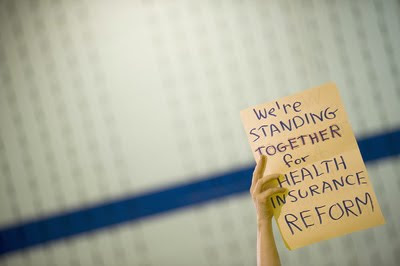 We're
STANDING
TOGETHER
for
HEALTH
INSURANCE
REFORM